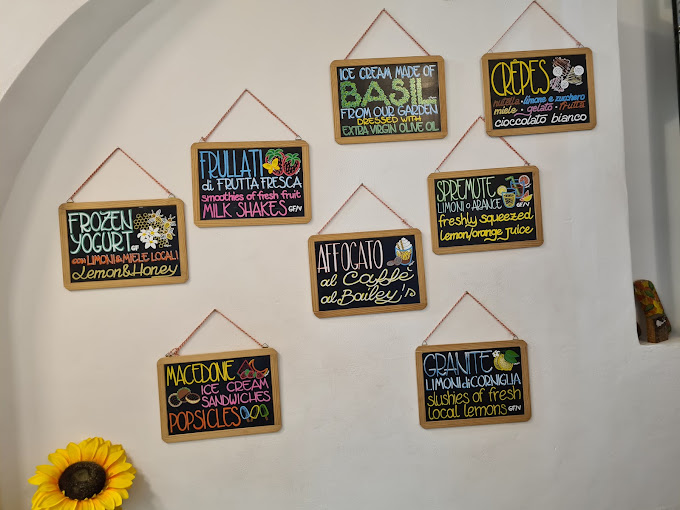 ICE CREAM MADE OF
BASIL
FROM OUR GARDEN
DRESSED WITH
EXTRA VIRGIN OLIVE OIL
CRÊPES
nutella · limone e zucchero
miele · gelato · frutta
cioccolato bianco
FRULLATI
di FRUTTA FRESCA
smoothies of fresh fruit
MILK SHAKES GF/V
SPREMUTE
LIMONI O ARANCE
freshly squeezed
lemon/orange juice
FROZEN
YOGURT GF
con LIMONI & MIELE LOCALI
Lemon & Honey
AFFOGATO
al Caffè
al Bailey's
MACEDONIE
ICE CREAM
SANDWICHES
POPSICLES
GRANITE
LIMONI di CORNIGLIA
slushies of fresh
local lemons GF/V